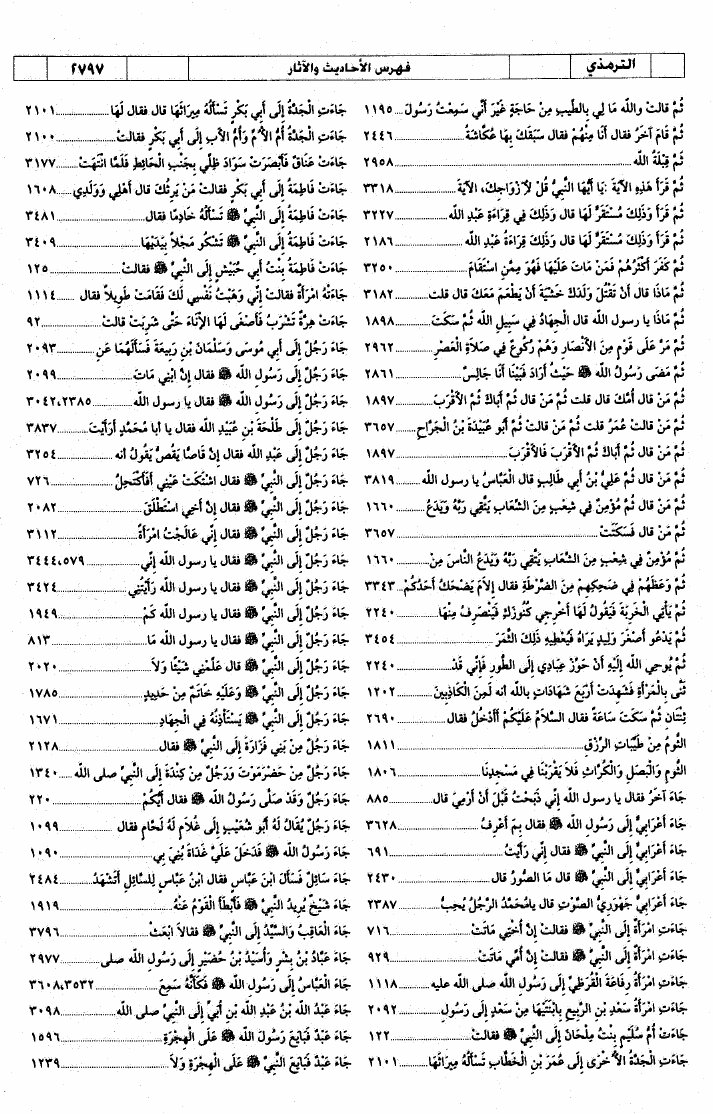 الترمذي
فهرس الأحاديث والآثار
٢٧٩٧
ثُمَّ قالت والله مَا لِي بالطِّيبِ مِنْ حَاجَةٍ غَيْرَ أَنِّي سَمِعْتُ رَسُولَ ... ١١٩٥
ثُمَّ قَامَ آخَرُ فقال أنَا مِنْهُمْ فقال سَبَقَكَ بِهَا عُكَّاشَةُ ... ٢٤٤٦
ثُمَّ قِبْلَةُ اللّه ... ٢٩٥٨
ثُمَّ قَرَأَ هَذِهِ الآيَةَ :يَا أَيُّهَا النَّبِيُّ قُلْ لأَزْوَاجِكَ، الآيَةَ ... ٣٣١٨
ثُمَّ قَرَأَ وَذَلِكَ مُسْتَقَرٌّ لَهَا قال وَذَلِكَ فِي قِرَاءَةِ عَبْدِ الله ... ٣٢٢٧
ثُمَّ قَرَأَ وَذَلِكَ مُسْتَقَرٌّ لَهَا قال وَذَلِكَ قِرَاءَةُ عَبْدِ الله ... ٢١٨٦
ثُمَّ كَفَرَ أَكْثَرُهُمْ فَمَنْ مَاتَ عَلَيْهَا فَهُوَ مِمَّنِ اسْتَقَامَ ... ٣٢٥٠
ثُمَّ مَاذَا قال أَنْ تَقْتُلَ وَلَدَكَ خَشْيَةَ أَنْ يَطْعَمَ مَعَكَ قال قلت ... ٣١٨٢
ثُمَّ مَاذَا يا رسول الله قال الْجِهَادُ فِي سَبِيلِ الله ثُمَّ سَكَتَ ... ١٨٩٨
ثُمَّ مَرَّ عَلَى قَوْمٍ مِنَ الأَنْصَارِ وَهُمْ رُكُوعٌ فِي صَلاَةِ الْعَصْرِ ... ٢٩٦٢
ثُمَّ مَضَى رَسُولُ الله ﷺ حَيْثُ أَرَادَ فَبَيْنَا أَنَا جَالِسٌ ... ٢٨٦١
ثُمَّ مَنْ قال أُمَّكَ قال قلت ثُمَّ مَنْ قال ثُمَّ أَبَاكَ ثُمَّ الأَقْرَبَ ... ١٨٩٧
ثُمَّ مَنْ قالت عُمَرُ قلت ثُمَّ مَنْ قالت ثُمَّ أَبُو عُبَيْدَةَ بْنُ الْجَرَّاحِ ... ٣٦٥٧
ثُمَّ مَنْ قال ثُمَّ أَبَاكَ ثُمَّ الأَقْرَبَ فَالأَقْرَبَ ... ١٨٩٧
ثُمَّ مَنْ قال ثُمَّ عَلِيُّ بْنُ أَبِي طَالِبٍ قال الْعَبَّاسُ يا رسول الله ... ٣٨١٩
ثُمَّ مَنْ قال ثُمَّ مُؤْمِنٌ فِي شِعْبٍ مِنَ الشِّعَابِ يَتَّقِي رَبَّهُ وَيَدَعُ ... ١٦٦٠
ثُمَّ مَنْ قال فَسَكَتَتْ ... ٣٦٥٧
ثُمَّ مُؤْمِنٌ فِي شِعْبٍ مِنَ الشِّعَابِ يَتَّقِي رَبَّهُ وَيَدَعُ النَّاسَ مِنْ ... ١٦٦٠
ثُمَّ وَعَظَهُمْ فِي ضَحِكِهِمْ مِنَ الضَّرْطَةِ فقال إِلاَمَ يَضْحَكُ أَحَدُكُمْ ... ٣٣٤٣
ثُمَّ يَأْتِي الْخَرِبَةَ فَيَقُولُ لَهَا أَخْرِجِي كُنُوزَكِ فَيَنْصَرِفُ مِنْهَا ... ٢٢٤٠
ثُمَّ يَدْعُو أَصْغَرَ وَلِيدٍ يَرَاهُ فَيُعْطِيهِ ذَلِكَ الثَّمَرَ ... ٣٤٥٤
ثُمَّ يُوحِي الله إِلَيْهِ أَنْ حَوِّزْ عِبَادِي إِلَى الطُّورِ فَإِنِّي قَدْ ... ٢٢٤٠
ثَنَّى بِالْمَرْأَةِ فَشَهِدَتْ أَرْبَعَ شَهَادَاتٍ بالله أنه لَمِنَ الْكَاذِبِينَ ... ١٢٠٢
ثِنْتَانِ ثُمَّ سَكَتَ سَاعَةً فقال السَّلاَمُ عَلَيْكُمْ أَأَدْخُلُ فقال ... ٢٦٩٠
الثُّومُ مِنْ طَيِّبَاتِ الرِّزْقِ ... ١٨١١
الثُّومِ وَالْبَصَلِ وَالْكُرَّاثِ فَلاَ يَقْرَبْنَا فِي مَسْجِدِنَا ... ١٨٠٦
جَاءَ آخَرُ فقال يا رسول الله إِنِّي ذَبَحْتُ قَبْلَ أَنْ أَرْمِيَ قال ... ٨٨٥
جَاءَ أَعْرَابِيٌّ إِلَى رَسُولِ الله ﷺ فقال بِمَ أَعْرِفُ ... ٣٦٢٨
جَاءَ أَعْرَابِيٌّ إِلَى النَّبِيِّ ﷺ فقال إِنِّي رَأَيْتُ ... ٦٩١
جَاءَ أَعْرَابِيٌّ إِلَى النَّبِيِّ ﷺ قال مَا الصُّورُ قال ... ٢٤٣٠
جَاءَ أَعْرَابِيٌّ جَهْوَرِيُّ الصَّوْتِ قال يامُحَمَّدُ الرَّجُلُ يُحِبُّ ... ٢٣٨٧
جَاءَتِ امْرَأَةٌ إِلَى النَّبِيِّ ﷺ فقالت إِنَّ أُخْتِي مَاتَتْ ... ٧١٦
جَاءَتِ امْرَأَةٌ إِلَى النَّبِيِّ ﷺ فقالت إِنَّ أُمِّي مَاتَتْ ... ٩٢٩
جَاءَتِ امْرَأَةُ رِفَاعَةَ الْقُرَظِيِّ إِلَى رَسُولِ الله صلى الله عليه ... ١١١٨
جَاءَتِ امْرَأَةُ سَعْدِ بْنِ الرَّبِيعِ بِابْنَتَيْهَا مِنْ سَعْدٍ إِلَى رَسُولِ ... ٢٠٩٢
جَاءَتْ أُمُّ سُلَيْمٍ بِنْتُ مِلْحَانَ إِلَى النَّبِيِّ ﷺ فقالت ... ١٢٢
جَاءَتِ الْجَدَّةُ الأُخْرَى إِلَى عُمَرَ بْنِ الْخَطَّابِ تَسْأَلُهُ مِيرَاثَهَا ... ٢١٠١
جَاءَتِ الْجَدَّةُ إِلَى أَبِي بَكْرٍ تَسْأَلُهُ مِيرَاثَهَا قال فقال لَهَا ... ٢١٠١
جَاءَتِ الْجَدَّةُ أُمُّ الأُمِّ وَأُمُّ الأَبِ إِلَى أَبِي بَكْرٍ فقالت ... ٢١٠٠
جَاءَتْ عَنَاقُ فَأَبْصَرَتْ سَوَادَ ظِلِّي بِجَنْبِ الْحَائِطِ فَلَمَّا انْتَهَتْ ... ٣١٧٧
جَاءَتْ فَاطِمَةُ إِلَى أَبِي بَكْرٍ فقالت مَنْ يَرِثُكَ قال أَهْلِي وَوَلَدِي ... ١٦٠٨
جَاءَتْ فَاطِمَةُ إِلَى النَّبِيِّ ﷺ تَسْأَلُهُ خَادِمًا فقال ... ٣٤٨١
جَاءَتْ فَاطِمَةُ إِلَى النَّبِيِّ ﷺ تَشْكُو مَجْلاً بِيَدَيْهَا ... ٣٤٠٩
جَاءَتْ فَاطِمَةُ بِنْتُ أَبِي حُبَيْشٍ إِلَى النَّبِيِّ ﷺ فقالت ... ١٢٥
جَاءَتْهُ امْرَأَةٌ فقالت إِنِّي وَهَبْتُ نَفْسِي لَكَ فَقَامَتْ طَوِيلاً فقال ... ١١١٤
جَاءَتْ هِرَّةٌ تَشْرَبُ فَأَصْغَى لَهَا الإِنَاءَ حَتَّى شَرِبَتْ قالت ... ٩٢
جَاءَ رَجُلٌ إِلَى أَبِي مُوسَى وَسَلْمَانَ بْنِ رَبِيعَةَ فَسَأَلَهُمَا عَنِ ... ٢٠٩٣
جَاءَ رَجُلٌ إِلَى رَسُولِ الله ﷺ فقال إِنَّ ابْنِي مَاتَ ... ٢٠٩٩
جَاءَ رَجُلٌ إِلَى رَسُولِ الله ﷺ فقال يا رسول الله ... ٣٠٤٢،٢٣٨٥
جَاءَ رَجُلٌ إِلَى طَلْحَةَ بْنِ عُبَيْدِ الله فقال يا أَبا مُحَمَّدٍ أَرَأَيْتَ ... ٣٨٣٧
جَاءَ رَجُلٌ إِلَى عَبْدِ الله فقال إِنَّ قَاصًّا يَقُصُّ يَقُولُ انه ... ٣٢٥٤
جَاءَ رَجُلٌ إِلَى النَّبِيِّ ﷺ فقال اشْتَكَتْ عَيْنِي أَفَأَكْتَحِلُ ... ٧٢٦
جَاءَ رَجُلٌ إِلَى النَّبِيِّ ﷺ فقال إِنَّ أَخِي اسْتَطْلَقَ ... ٢٠٨٢
جَاءَ رَجُلٌ إِلَى النَّبِيِّ ﷺ فقال إِنِّي عَالَجْتُ امْرَأَةً ... ٣١١٢
جَاءَ رَجُلٌ إِلَى النَّبِيِّ ﷺ فقال يا رسول الله إِنِّي ... ٣٤٤٤،٥٧٩
جَاءَ رَجُلٌ إِلَى النَّبِيِّ ﷺ فقال يا رسول الله رَأَيْتُنِي ... ٣٤٢٤
جَاءَ رَجُلٌ إِلَى النَّبِيِّ ﷺ فقال يا رسول الله كَمْ ... ١٩٤٩
جَاءَ رَجُلٌ إِلَى النَّبِيِّ ﷺ فقال يا رسول الله مَا ... ٨١٣
جَاءَ رَجُلٌ إِلَى النَّبِيِّ ﷺ قال عَلِّمْنِي شَيْئًا وَلاَ ... ٢٠٢٠
جَاءَ رَجُلٌ إِلَى النَّبِيِّ ﷺ وَعَلَيْهِ خَاتَمٌ مِنْ حَدِيدٍ ... ١٧٨٥
جَاءَ رَجُلٌ إِلَى النَّبِيِّ ﷺ يَسْتَأْذِنُهُ فِي الْجِهَادِ ... ١٦٧١
جَاءَ رَجُلٌ مِنْ بَنِي فَزَارَةَ إِلَى النَّبِيِّ ﷺ فقال ... ٢١٢٨
جَاءَ رَجُلٌ مِنْ حَضْرَمَوْتَ وَرَجُلٌ مِنْ كِنْدَةَ إِلَى النَّبِيِّ صلى الله ... ١٣٤٠
جَاءَ رَجُلٌ وَقَدْ صَلَّى رَسُولُ الله ﷺ فقال أَيُّكُمْ ... ٢٢٠
جَاءَ رَجُلٌ يُقَالُ لَهُ أَبُو شُعَيْبٍ إِلَى غُلاَمٍ لَهُ لَحَّامٍ فقال ... ١٠٩٩
جَاءَ رَسُولُ الله ﷺ فَدَخَلَ عَلَيَّ غَدَاةَ بُنِيَ بِي ... ١٠٩٠
جَاءَ سَائِلٌ فَسَأَلَ ابْنَ عَبَّاسٍ فقال ابْنُ عَبَّاسٍ لِلسَّائِلِ أَتَشْهَدُ ... ٢٤٨٤
جَاءَ شَيْخٌ يُرِيدُ النَّبِيَّ ﷺ فَأَبْطَأَ الْقَوْمُ عَنْهُ ... ١٩١٩
جَاءَ الْعَاقِبُ وَالسَّيِّدُ إِلَى النَّبِيِّ ﷺ فقالا ابْعَثْ ... ٣٧٩٦
جَاءَ عَبَّادُ بْنُ بِشْرٍ وَأُسَيْدُ بْنُ حُضَيْرٍ إِلَى رَسُولِ الله صلى ... ٢٩٧٧
جَاءَ الْعَبَّاسُ إِلَى رَسُولِ الله ﷺ فَكَأَنَّهُ سَمِعَ ... ٣٦٠٨،٣٥٣٢
جَاءَ عَبْدُ الله بْنُ عَبْدِ الله بْنِ أُبَيٍّ إِلَى النَّبِيِّ صلى الله ... ٣٠٩٨
جَاءَ عَبْدٌ فَبَايَعَ رَسُولَ الله ﷺ عَلَى الْهِجْرَةِ ... ١٥٩٦
جَاءَ عَبْدٌ فَبَايَعَ النَّبِيَّ ﷺ عَلَى الْهِجْرَةِ وَلاَ ... ١٢٣٩